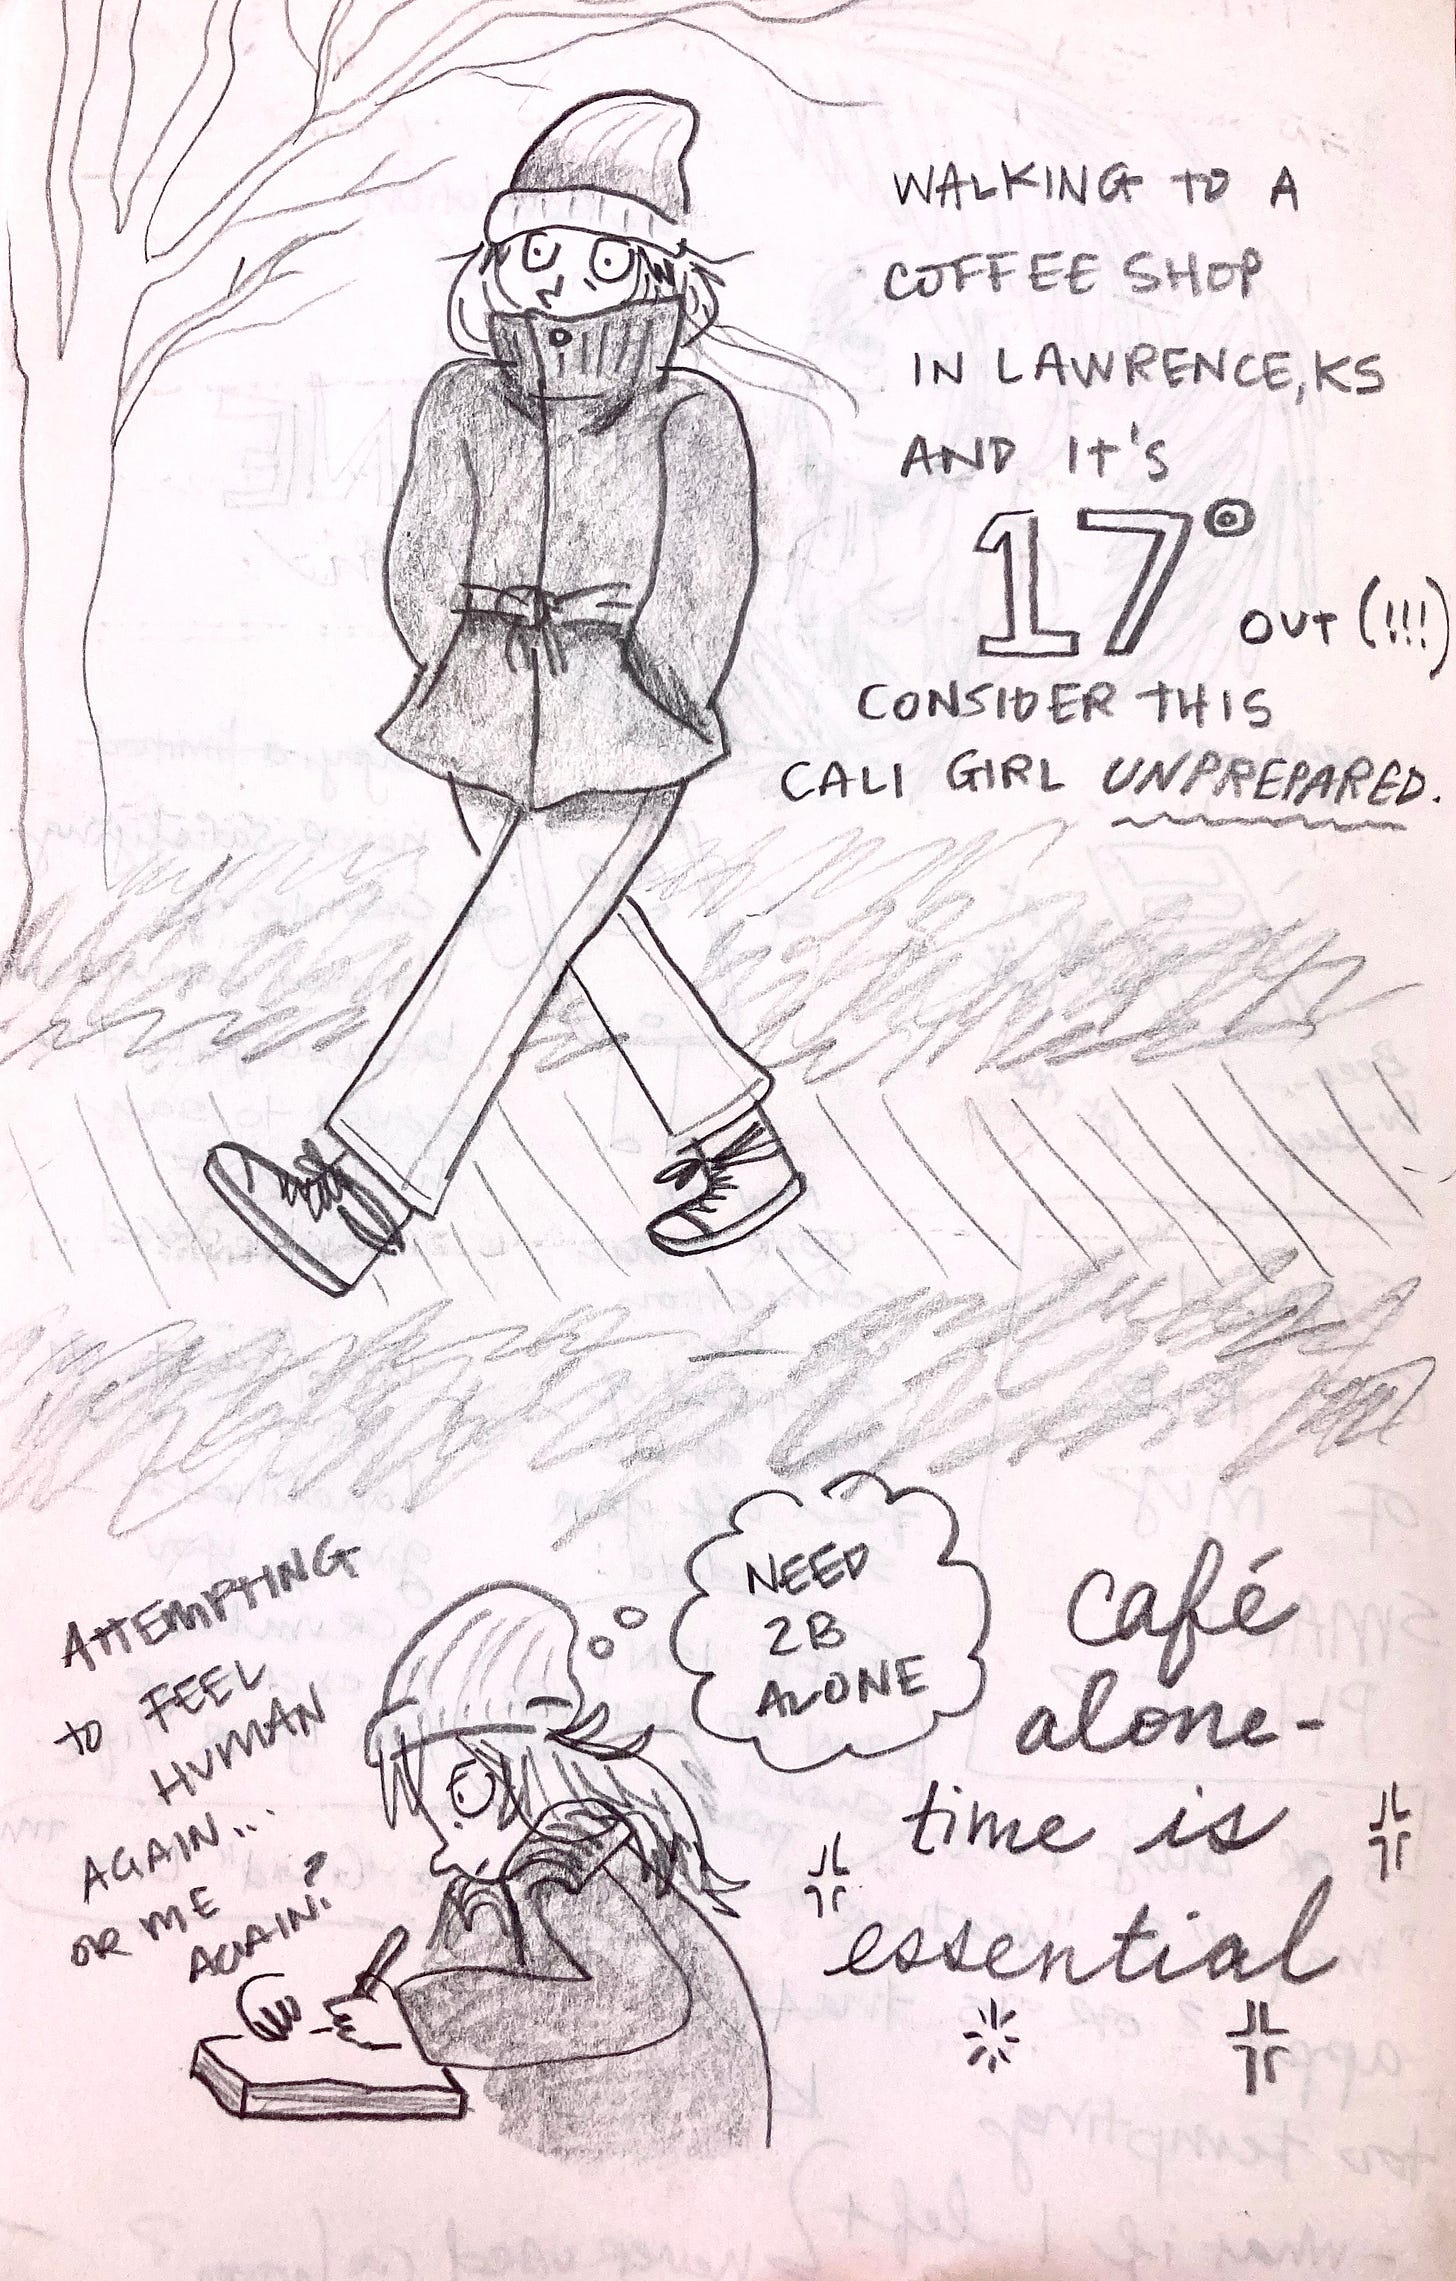 WALKING TO A
COFFEE SHOP
IN LAWRENCE, KS
AND IT'S
17°
OUT (!!!)
CONSIDER THIS
CALI GIRL UNPREPARED.
ATTEMPTING
TO FEEL
HUMAN
AGAIN...
OR ME
AGAIN?
NEED
2B
ALONE
café
alone-
time is
essential